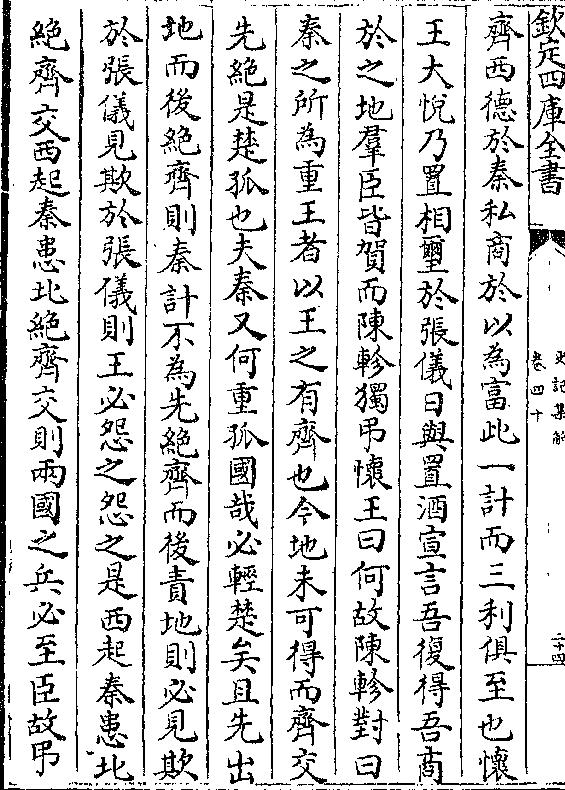 欽定四庫全書
史記集解
卷四十
二十四
齊西德於秦私商於以為富此一計而三利俱至也懷
王大悅乃置相璽於張儀日與置酒宣言吾復得吾商
於之地羣臣皆賀而陳軫獨弔懷王曰何故陳軫對曰
秦之所為重王者以王之有齊也今地未可得而齊交
先絶是楚孤也夫秦又何重孤國哉必輕楚矣且先出
地而後絶齊則秦計不為先絶齊而後責地則必見欺
於張儀見欺於張儀則王必怨之怨之是西起秦患北
絶齊交西起秦患北絶齊交則兩國之兵必至臣故弔